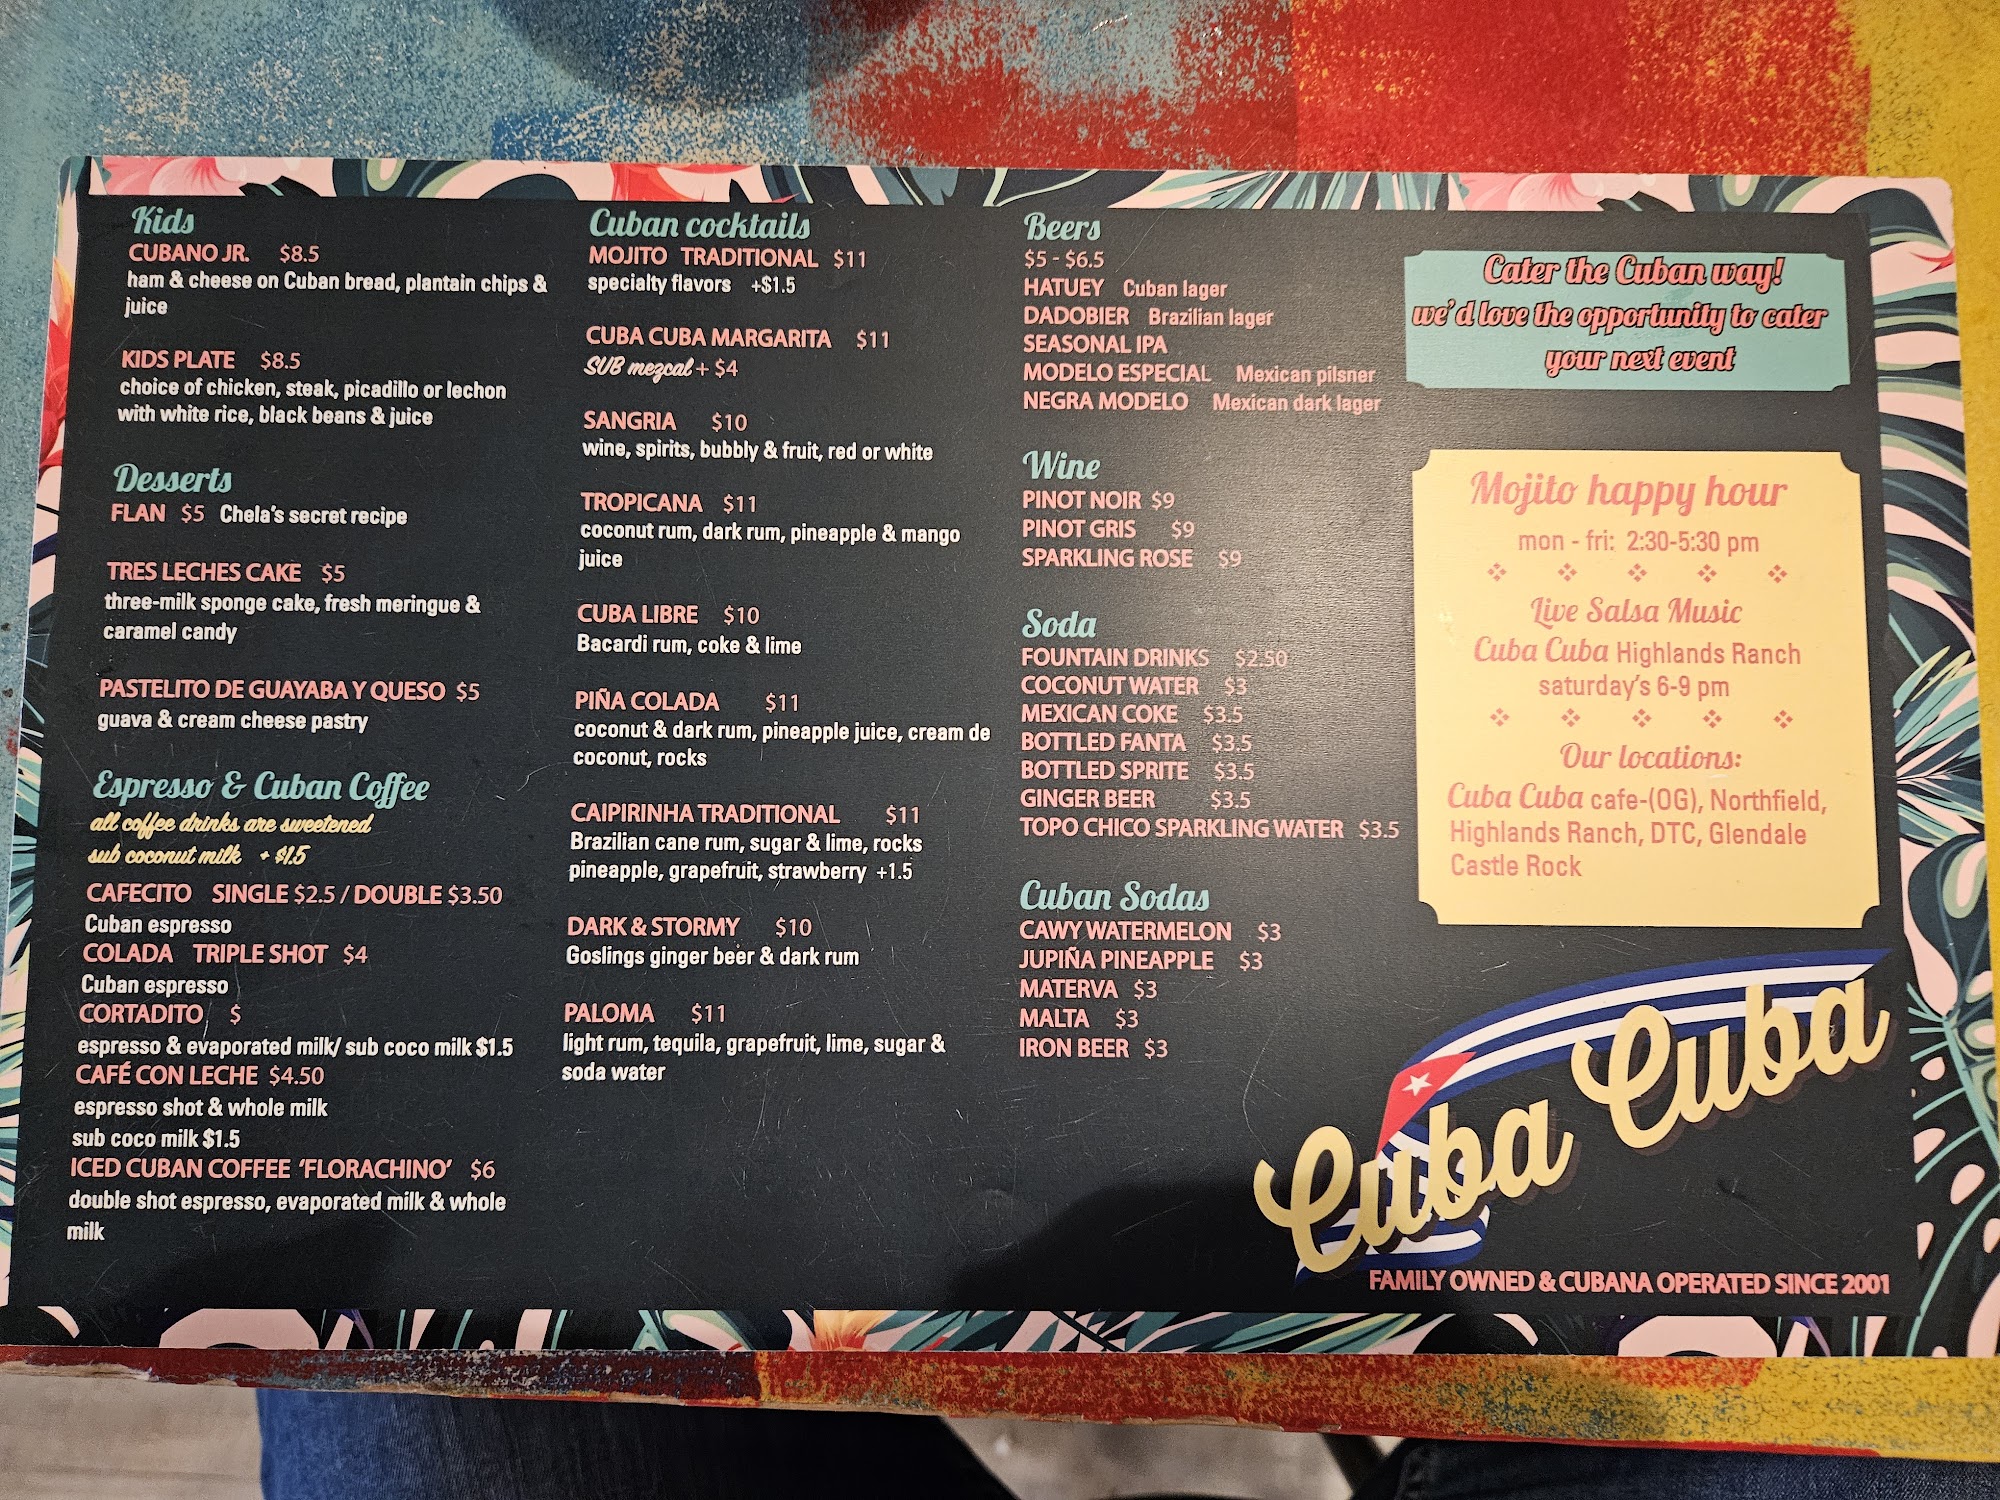 Kids
CUBANO JR. $8.5
ham & cheese on Cuban bread, plantain chips &
juice
KIDS PLATE $8.5
choice of chicken, steak, picadillo or lechon
with white rice, black beans & juice
Desserts
FLAN $5 Chela's secret recipe
TRES LECHES CAKE $5
three-milk sponge cake, fresh meringue &
caramel candy
PASTELITO DE GUAYABA Y QUESO $5
guava & cream cheese pastry
Espresso & Cuban Coffee
all coffee drinks are sweetened
sub coconut milk + $1.5
CAFECITO SINGLE $2.5 / DOUBLE $3.50
Cuban espresso
COLADA TRIPLE SHOT $4
Cuban espresso
CORTADITO $
espresso & evaporated milk/ sub coco milk $1.5
CAFÉ CON LECHE $4.50
espresso shot & whole milk
sub coco milk $1.5
ICED CUBAN COFFEE 'FLORACHINO' $6
double shot espresso, evaporated milk & whole
milk
Cuban cocktails
MOJITO TRADITIONAL $11
specialty flavors +$1.5
CUBA CUBA MARGARITA $11
SUB mezcal + $4
SANGRIA $10
wine, spirits, bubbly & fruit, red or white
TROPICANA $11
coconut rum, dark rum, pineapple & mango
juice
CUBA LIBRE $10
Bacardi rum, coke & lime
PIÑA COLADA $11
coconut & dark rum, pineapple juice, cream de
coconut, rocks
CAIPIRINHA TRADITIONAL $11
Brazilian cane rum, sugar & lime, rocks
pineapple, grapefruit, strawberry +1.5
DARK & STORMY $10
Goslings ginger beer & dark rum
PALOMA $11
light rum, tequila, grapefruit, lime, sugar &
soda water
Beers
$5 - $6.5
HATUEY Cuban lager
DADOBIER Brazilian lager
SEASONAL IPA
MODELO ESPECIAL Mexican pilsner
NEGRA MODELO Mexican dark lager
Wine
PINOT NOIR $9
PINOT GRIS $9
SPARKLING ROSE $9
Soda
FOUNTAIN DRINKS $2.50
COCONUT WATER $3
MEXICAN COKE $3.5
BOTTLED FANTA $3.5
BOTTLED SPRITE $3.5
GINGER BEER $3.5
TOPO CHICO SPARKLING WATER $3.5
Cuban Sodas
CAWY WATERMELON $3
JUPIÑA PINEAPPLE $3
MATERVA $3
MALTA $3
IRON BEER $3
Cater the Cuban way!
we'd love the opportunity to cater
your next event
Mojito happy hour
mon - fri: 2:30-5:30 pm
Live Salsa Music
Cuba Cuba Highlands Ranch
saturday's 6-9 pm
Our locations:
Cuba Cuba cafe-(OG), Northfield,
Highlands Ranch, DTC, Glendale
Castle Rock
Cuba Cuba
FAMILY OWNED & CUBANA OPERATED SINCE 2001